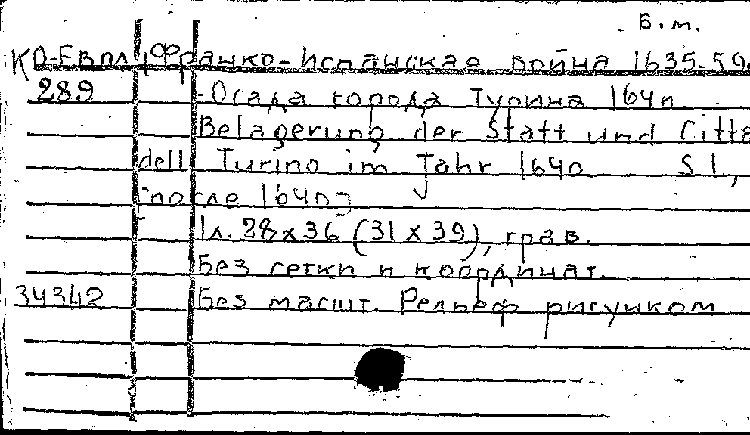 Б.м.
КО-Евпл, Франко-Испанская война 1635-59.
289 - Осада города Турина 1640
Belagerung der Statt und Citta
dell Turino im Jahr 1640 S l,
после 1640]
1л. 28х36 (31 х 39), грав.
Без сетки и координат.
34342 Без масшт. Рельеф рисунком